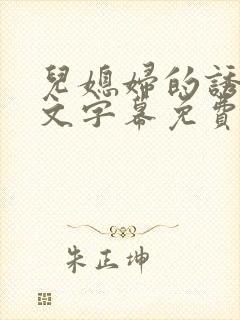 兒媳婦的誘
文字幕免費
朱正坤